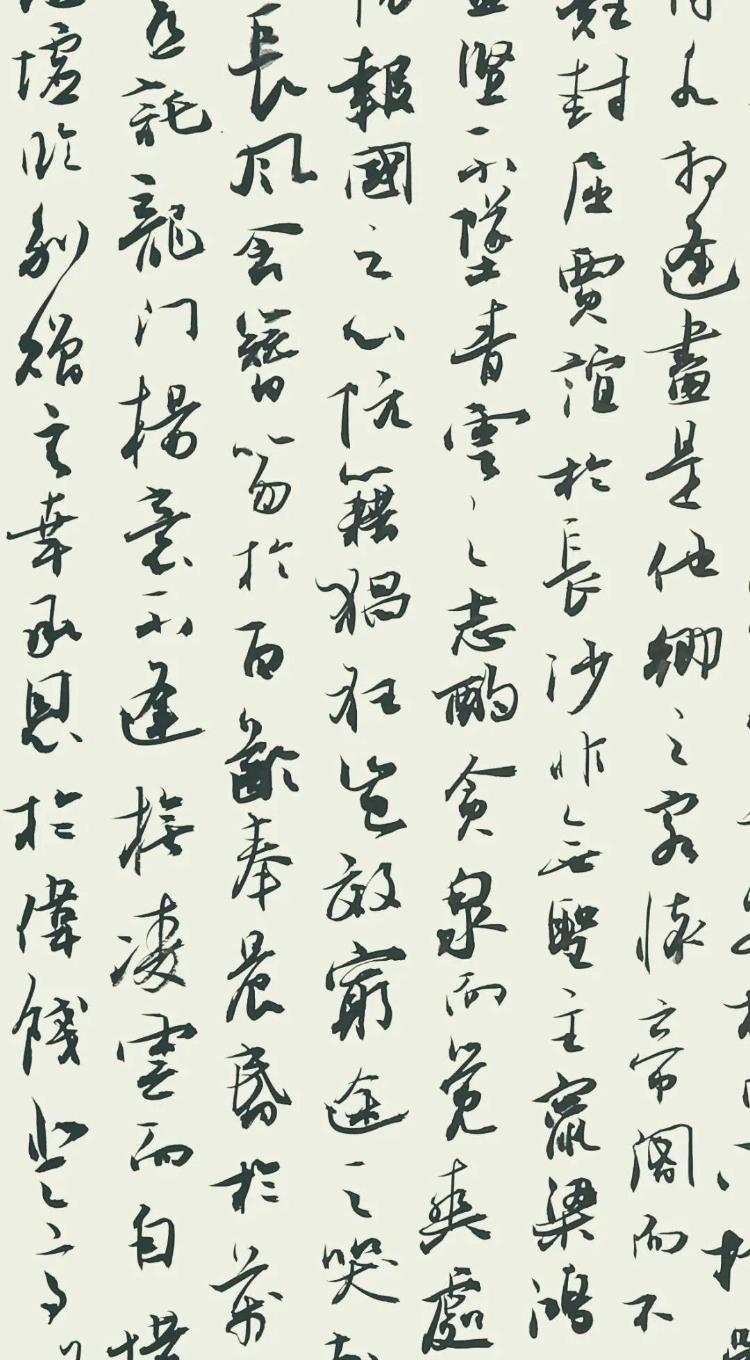 水相逢盡是他鄉之客懷帝閽而不
封屈賈誼於長沙非無聖主竄梁鴻
堅不墜青雲之志酌貪泉而覺爽處
報國之心阮籍猖狂豈效窮途之哭
長風舍簪笏於百齡奉晨昏於萬
託龍門楊意不逢撫凌雲而自惜
墟臨別贈言幸承恩於偉餞